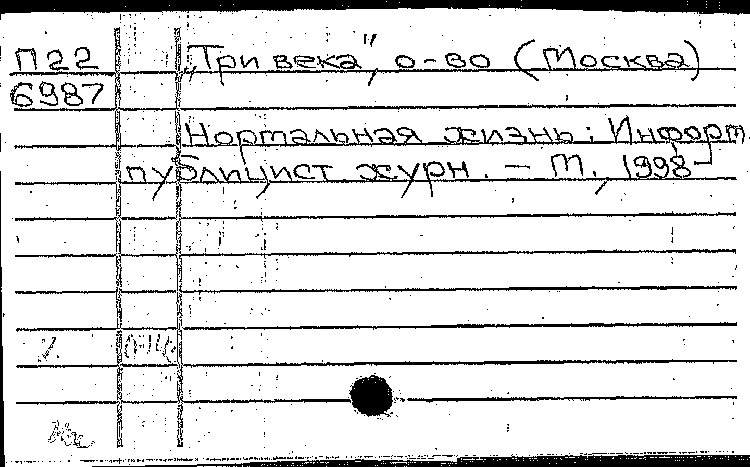 П22 „Три века", о-во (Москва)
6987
Нормальная жизнь: Информ.
публицист журн. — М., 1998-